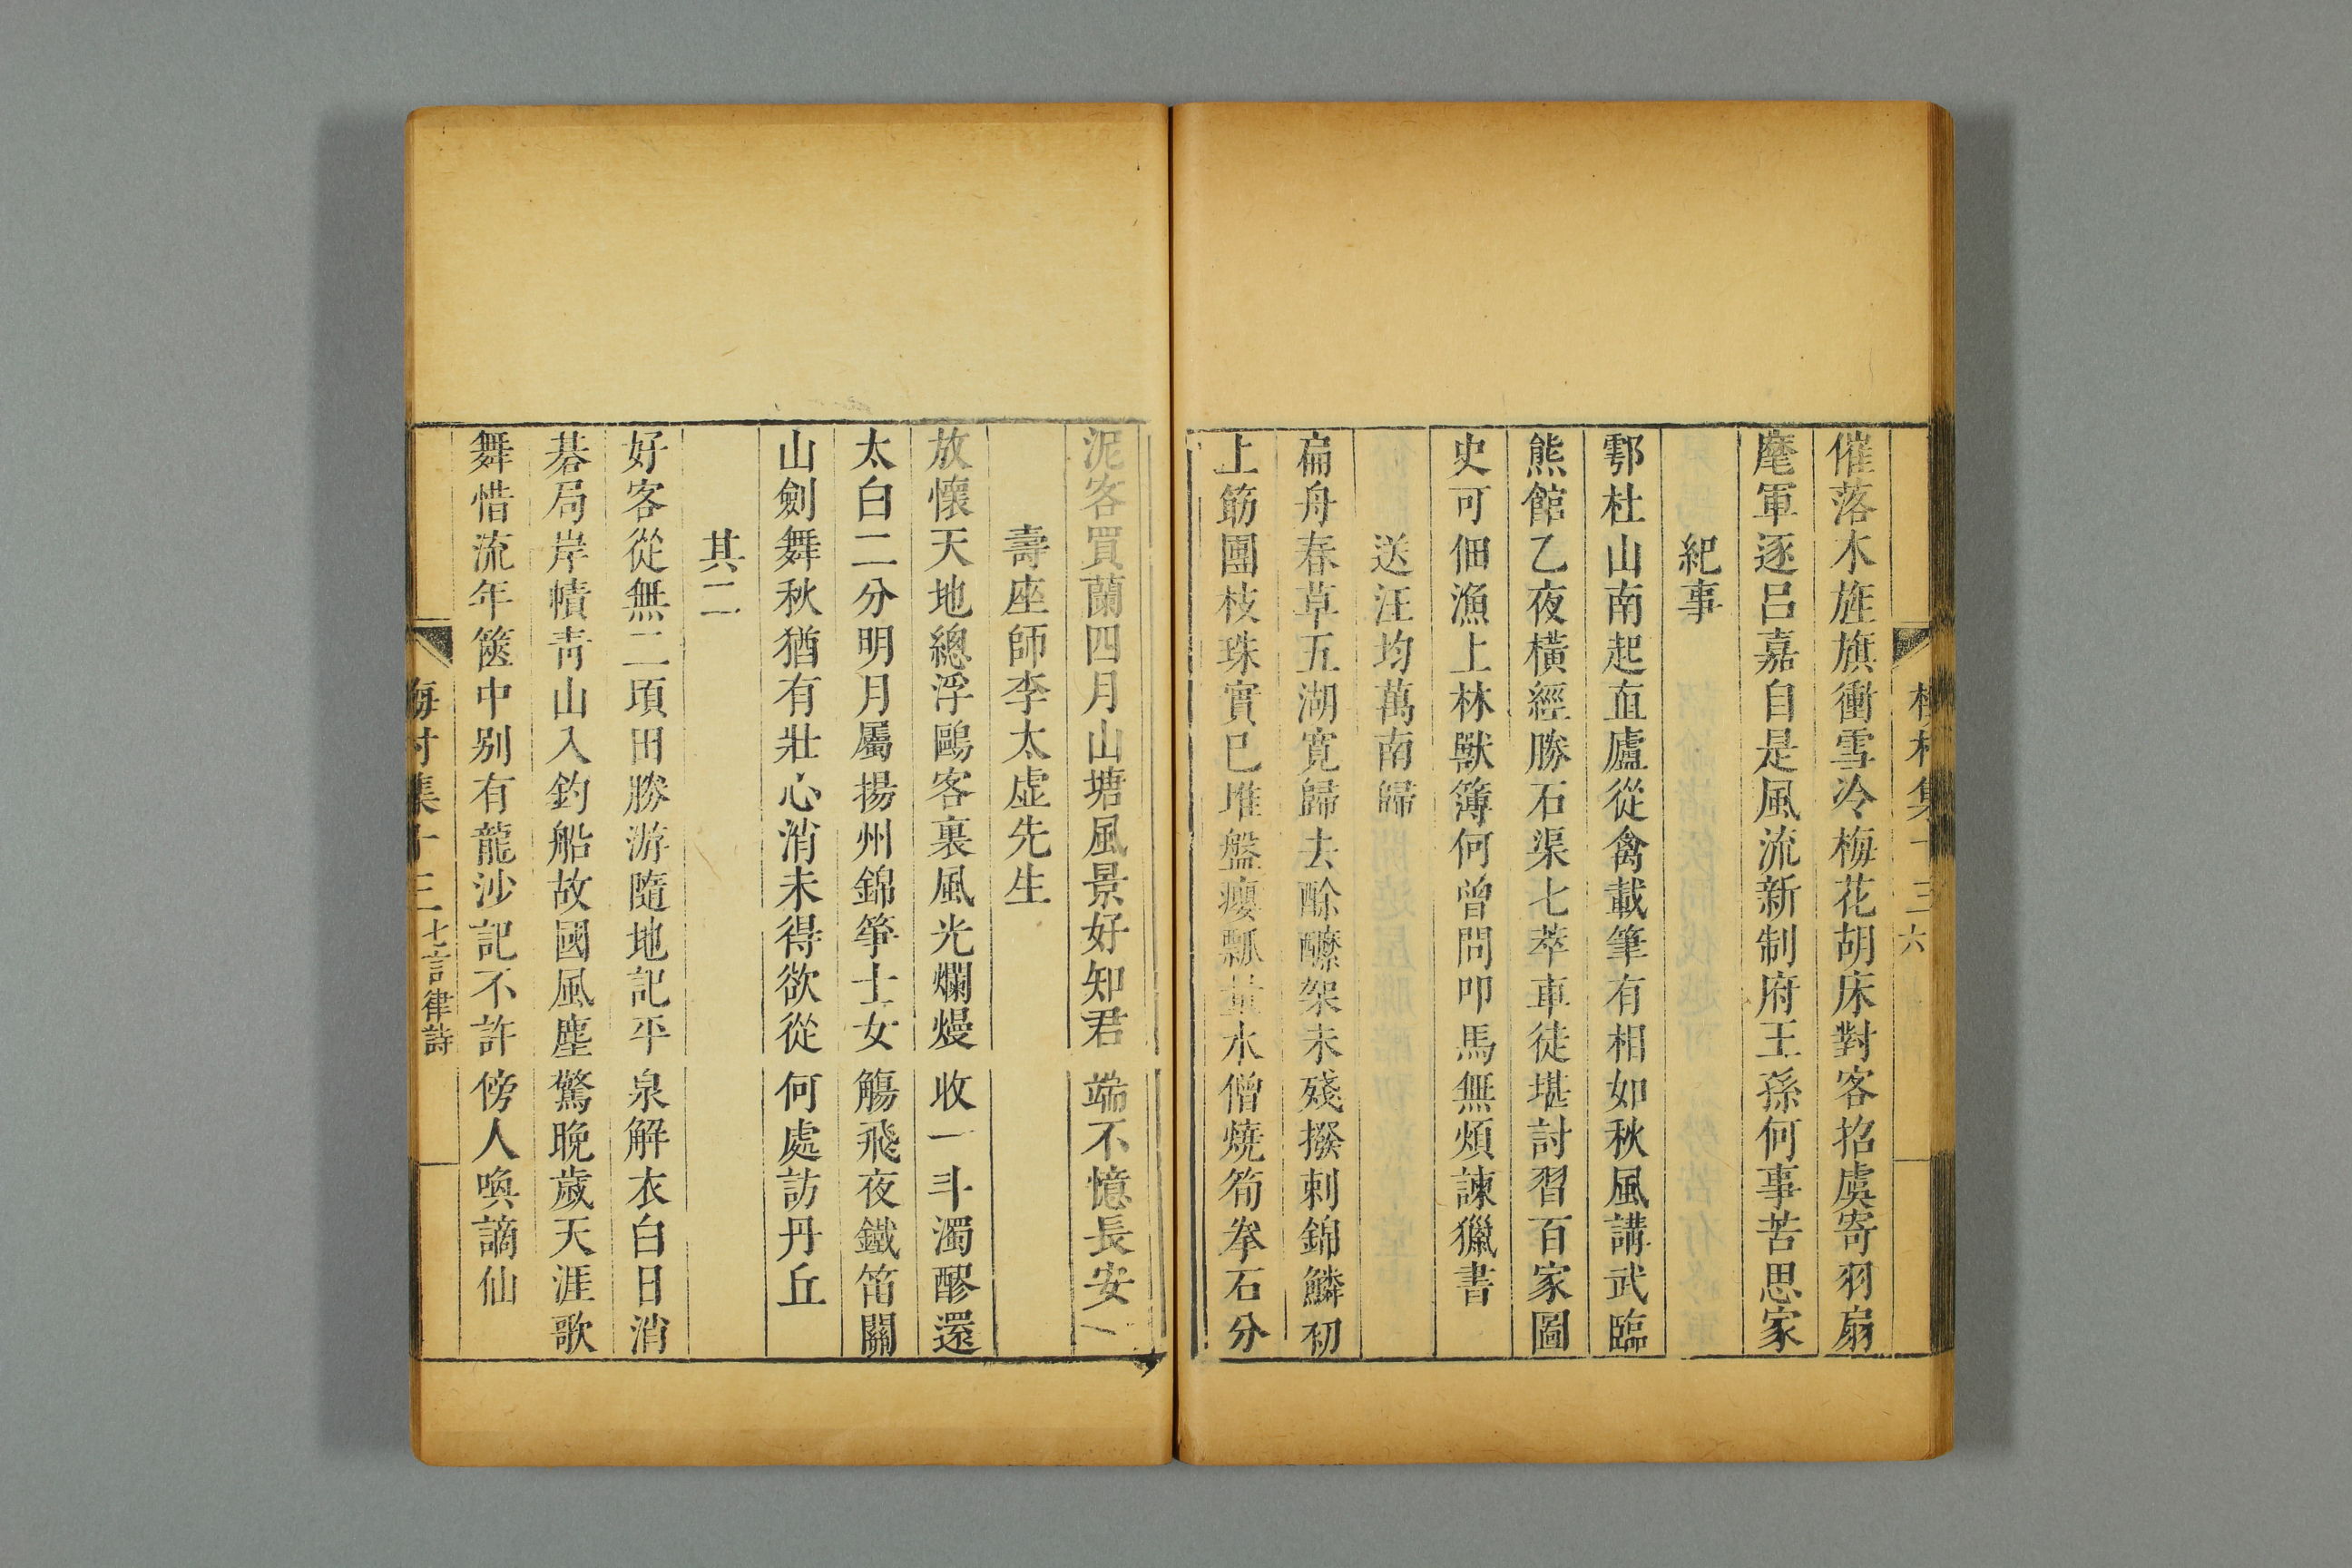 梅村集十三 六
催落木旌旗衝雪冷梅花胡床對客招虞寄羽扇
麾軍逐呂嘉自是風流新制府王孫何事苦思家
紀事
鄠杜山南起直廬從禽載筆有相如秋風講武臨
熊館乙夜橫經勝石渠七萃車徒堪討習百家圖
史可佃漁上林獸簿何曾問叩馬無煩諫獵書
送汪均萬南歸
扁舟春草五湖寬歸去酴醾架未殘撥刺錦鱗初
上筯團枝珠實已堆盤癭瓢量水僧燒筍拳石分
泥客買蘭四月山塘風景好知君端不憶長安
壽座師李太虛先生
放懷天地總浮鷗客裏風光爛熳收一斗濁醪還
太白二分明月屬揚州錦箏士女觴飛夜鐵笛關
山劍舞秋猶有壯心消未得欲從何處訪丹丘
其二
好客從無二頃田勝游隨地記平泉解衣白日消
碁局岸幘青山入釣船故國風塵驚晚歲天涯歌
舞惜流年篋中別有龍沙記不許傍人喚謫仙
梅村集十三 七言律詩